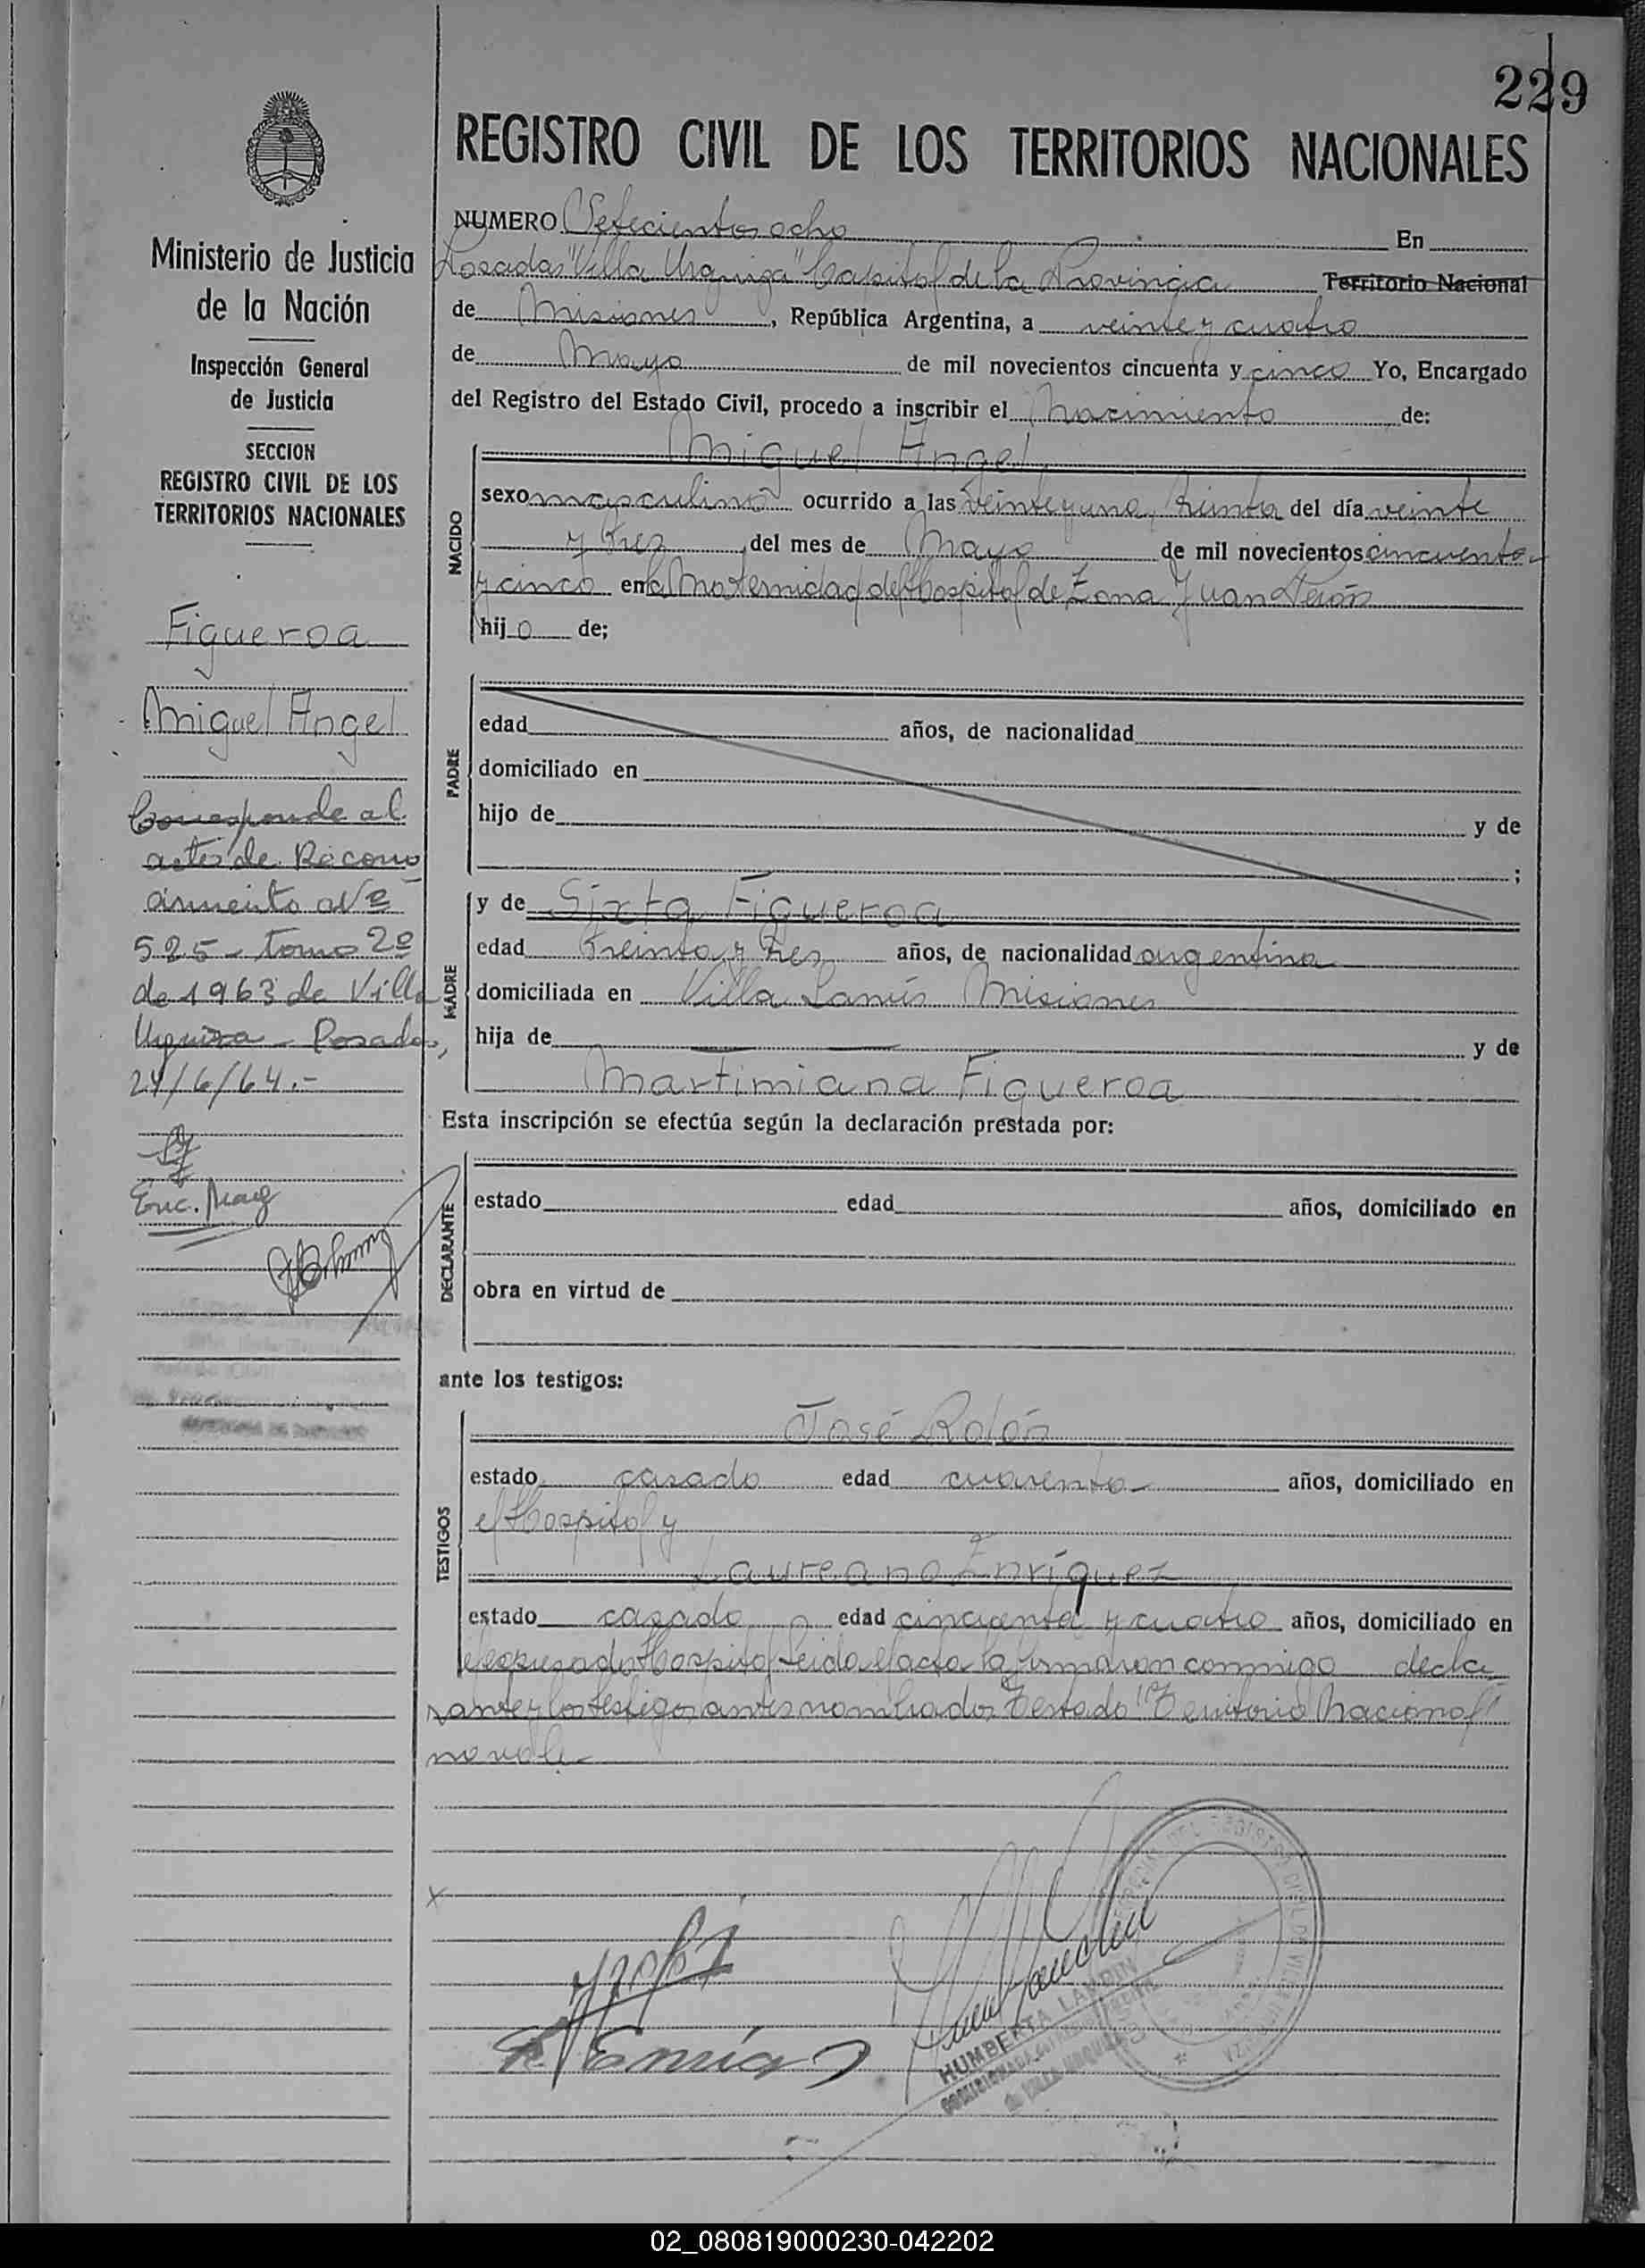 229
REGISTRO CIVIL DE LOS TERRITORIOS NACIONALES
Ministerio de Justicia
de la Nación
Inspección General
de Justicia
SECCION
REGISTRO CIVIL DE LOS
TERRITORIOS NACIONALES
Figueroa
Miguel Angel
Corresponde al
acta de Recono
cimiento Nº
525 - tomo 2º
de 1963 de Villa
Urquiza - Posadas,
24/6/64.-
Enc.
NUMERO Setecientos ocho En
Posadas "Villa Urquiza" Capital de la Provincia Territorio Nacional
de Misiones, República Argentina, a veinte y cuatro
de Mayo de mil novecientos cincuenta y cinco Yo, Encargado
del Registro del Estado Civil, procedo a inscribir el Nacimiento de:
NACIDO
Miguel Angel
sexo masculino ocurrido a las veinte y una, treinta del día veinte
y tres, del mes de Mayo de mil novecientos cincuenta
y cinco en la Maternidad del Hospital de Zona Juan Perón
hijo de;
PADRE
edad años, de nacionalidad
domiciliado en
hijo de y de
;
MADRE
y de Sixta Figueroa
edad treinta y tres años, de nacionalidad argentina
domiciliada en Villa Lanús Misiones
hija de y de
Martimiana Figueroa
Esta inscripción se efectúa según la declaración prestada por:
DECLARANTE
estado edad años, domiciliado en
obra en virtud de
ante los testigos:
TESTIGOS
José Rolón
estado casado edad cuarenta años, domiciliado en
el Hospital y
Laureano Enríquez
estado casado edad cincuenta y cuatro años, domiciliado en
el expresado Hospital Leida el acta la firmaron conmigo decla
rante y los testigos antes nombrados Testado "Territorio Nacional"
no vale
HUMBERTA LANDIN
02_080819000230-042202